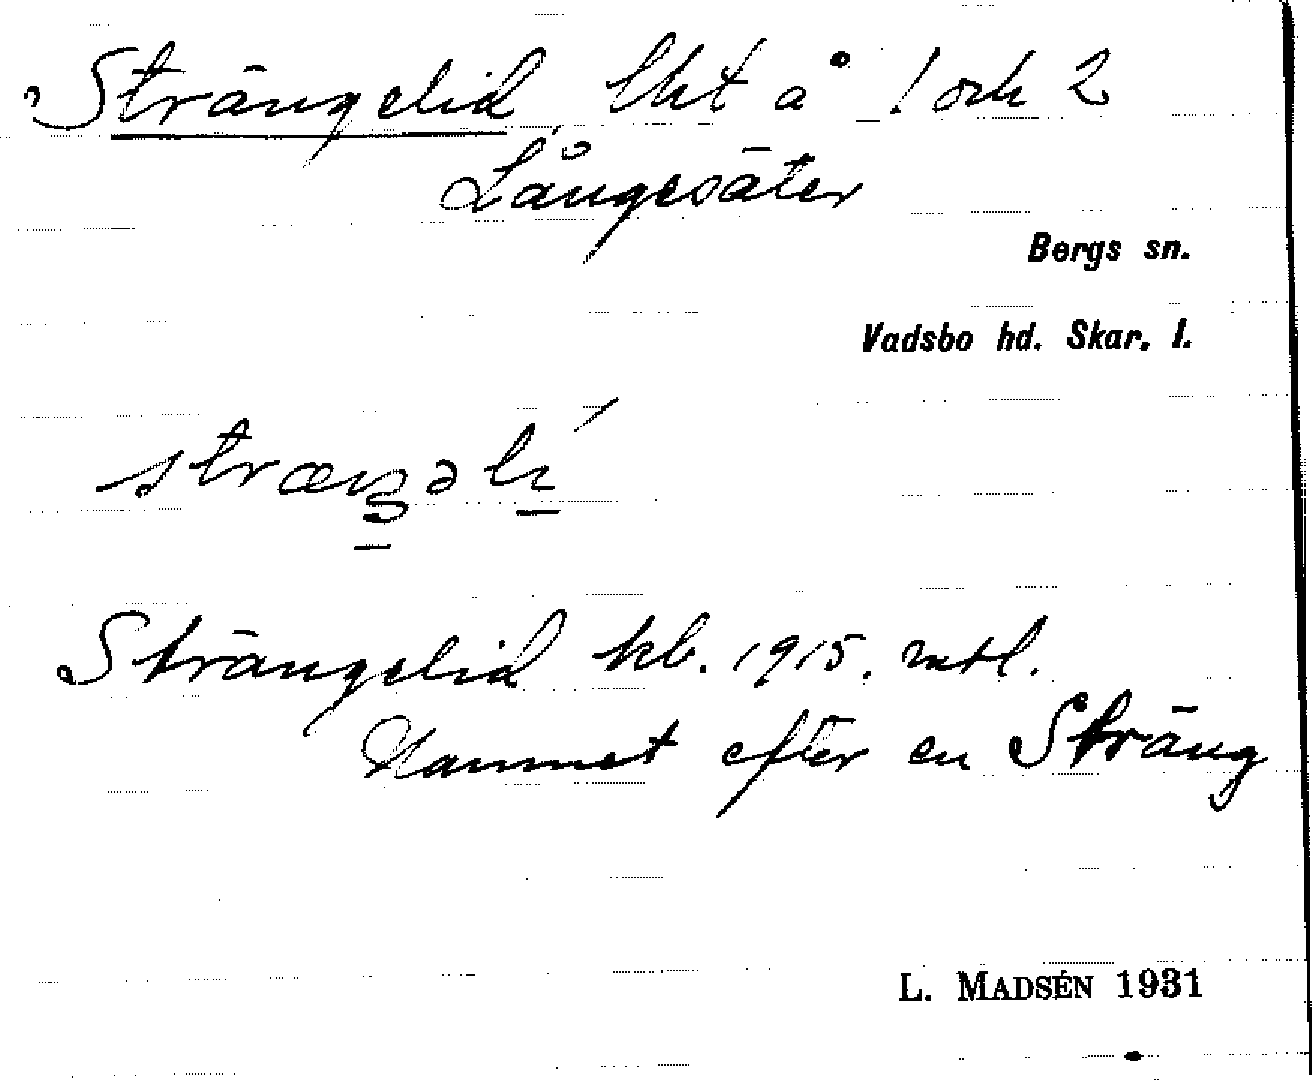 Strängelid lht å 1 och 2
Långesäter
Bergs sn.
Vadsbo hd. Skar. l.
Strängelid kb. 1915. mtl.
Namnet efter en Sträng
L. MADSÉN 1931